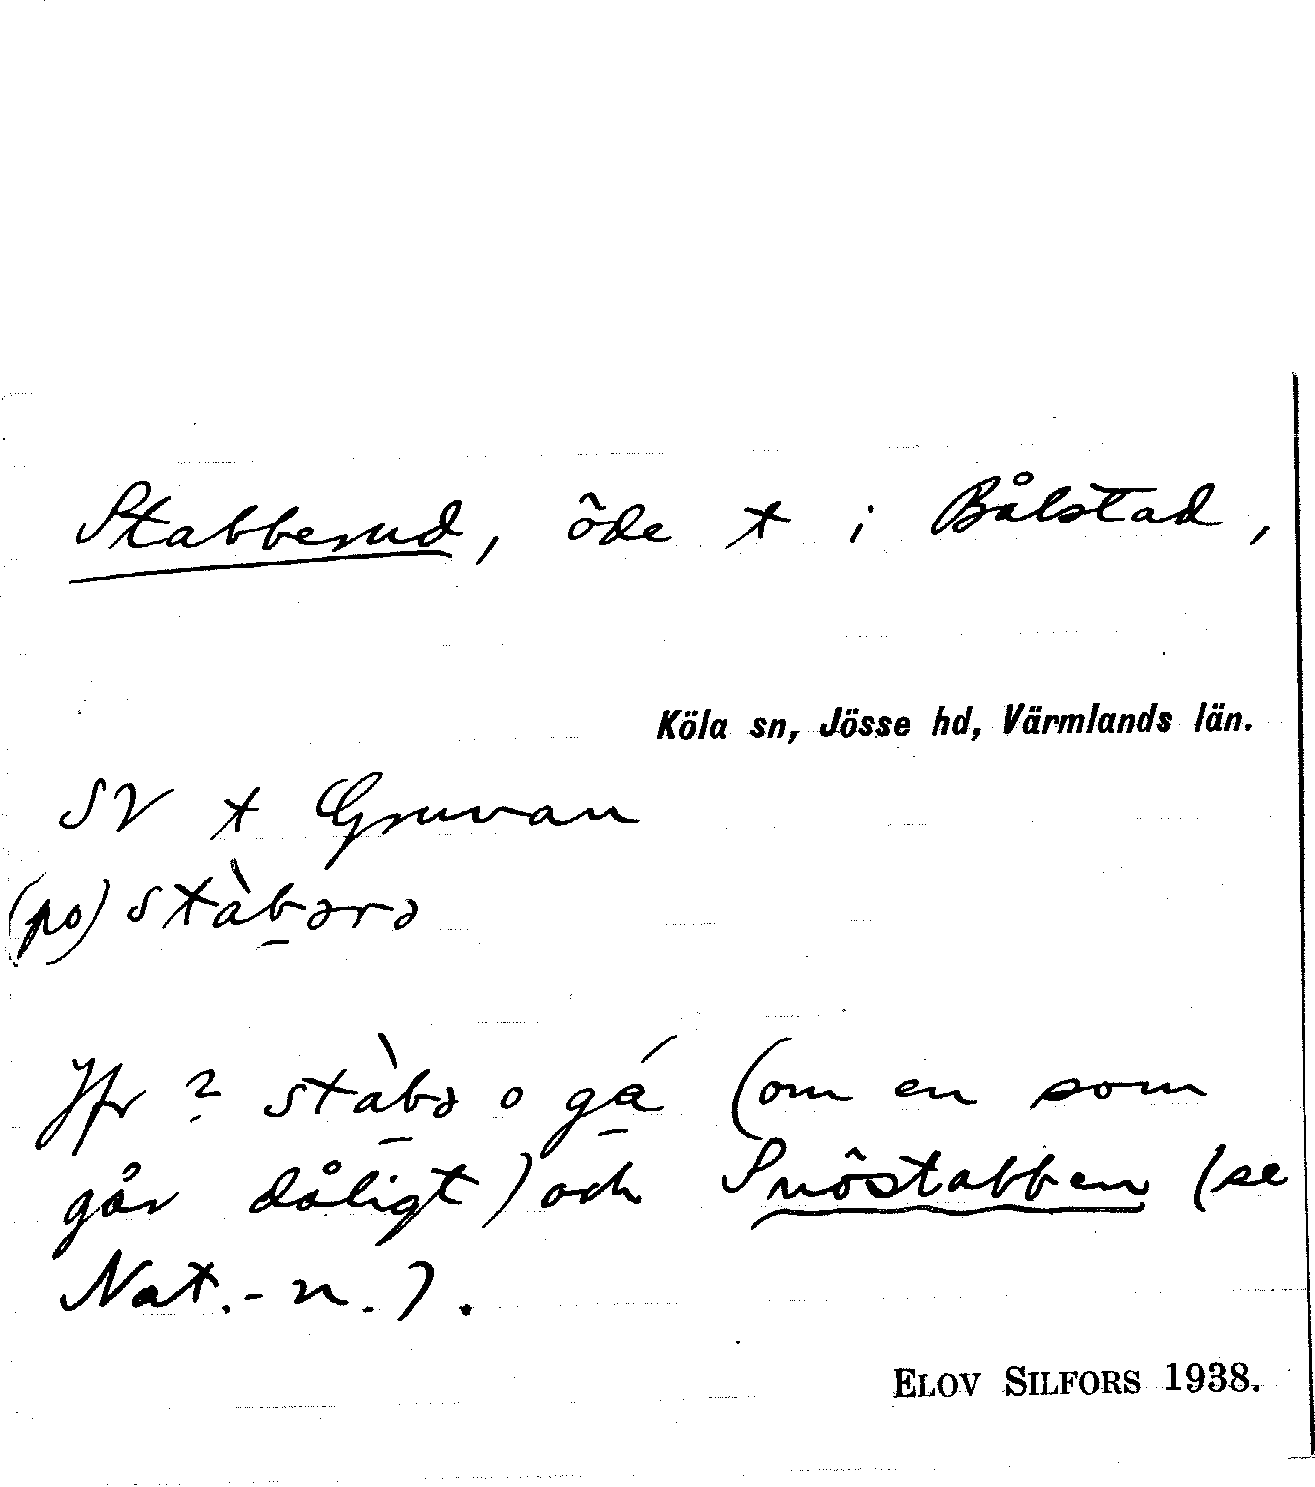 Stabberud, öde t i Bålstad,
Köla sn, Jösse hd, Värmlands län.
SV t Gruvan
(po) stàb̠ərə
Jfr ? stàb̠ə o gá̠ (om en som
går dåligt) och Snöstabben (se
Nat.-n.).
ELOV SILFORS 1938.